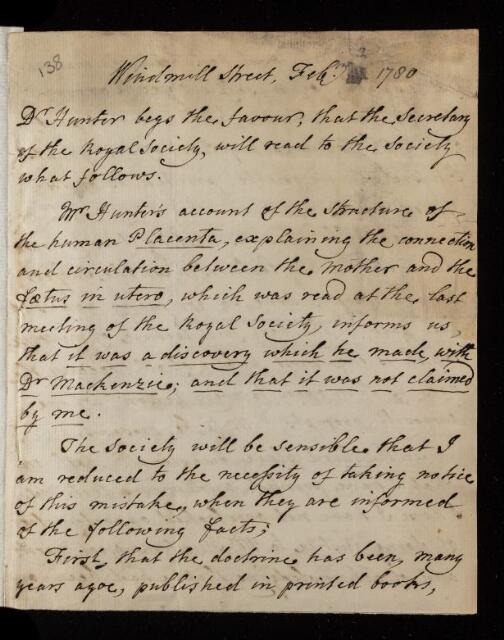 138
Windmill Street, Feb.ʸ 2 1780
Dʳ Hunter begs the favour, that the Secretary
of the Royal Society, will read to the Society
what follows.
Mʳ Hunter's account of the Structure of
the human Placenta, explaining the connection
and circulation between the Mother and the
fœtus in utero, which was read at the last
meeting of the Royal Society, informs us,
that it was a discovery which he made with
Dʳ Mackenzie; and that it was not claimed
by me.
The Society will be sensible that I
am reduced to the necessity of taking notice
of this mistake, when they are informed
of the following facts;
First, that the doctrine has been, many
years agoe, published in printed books,